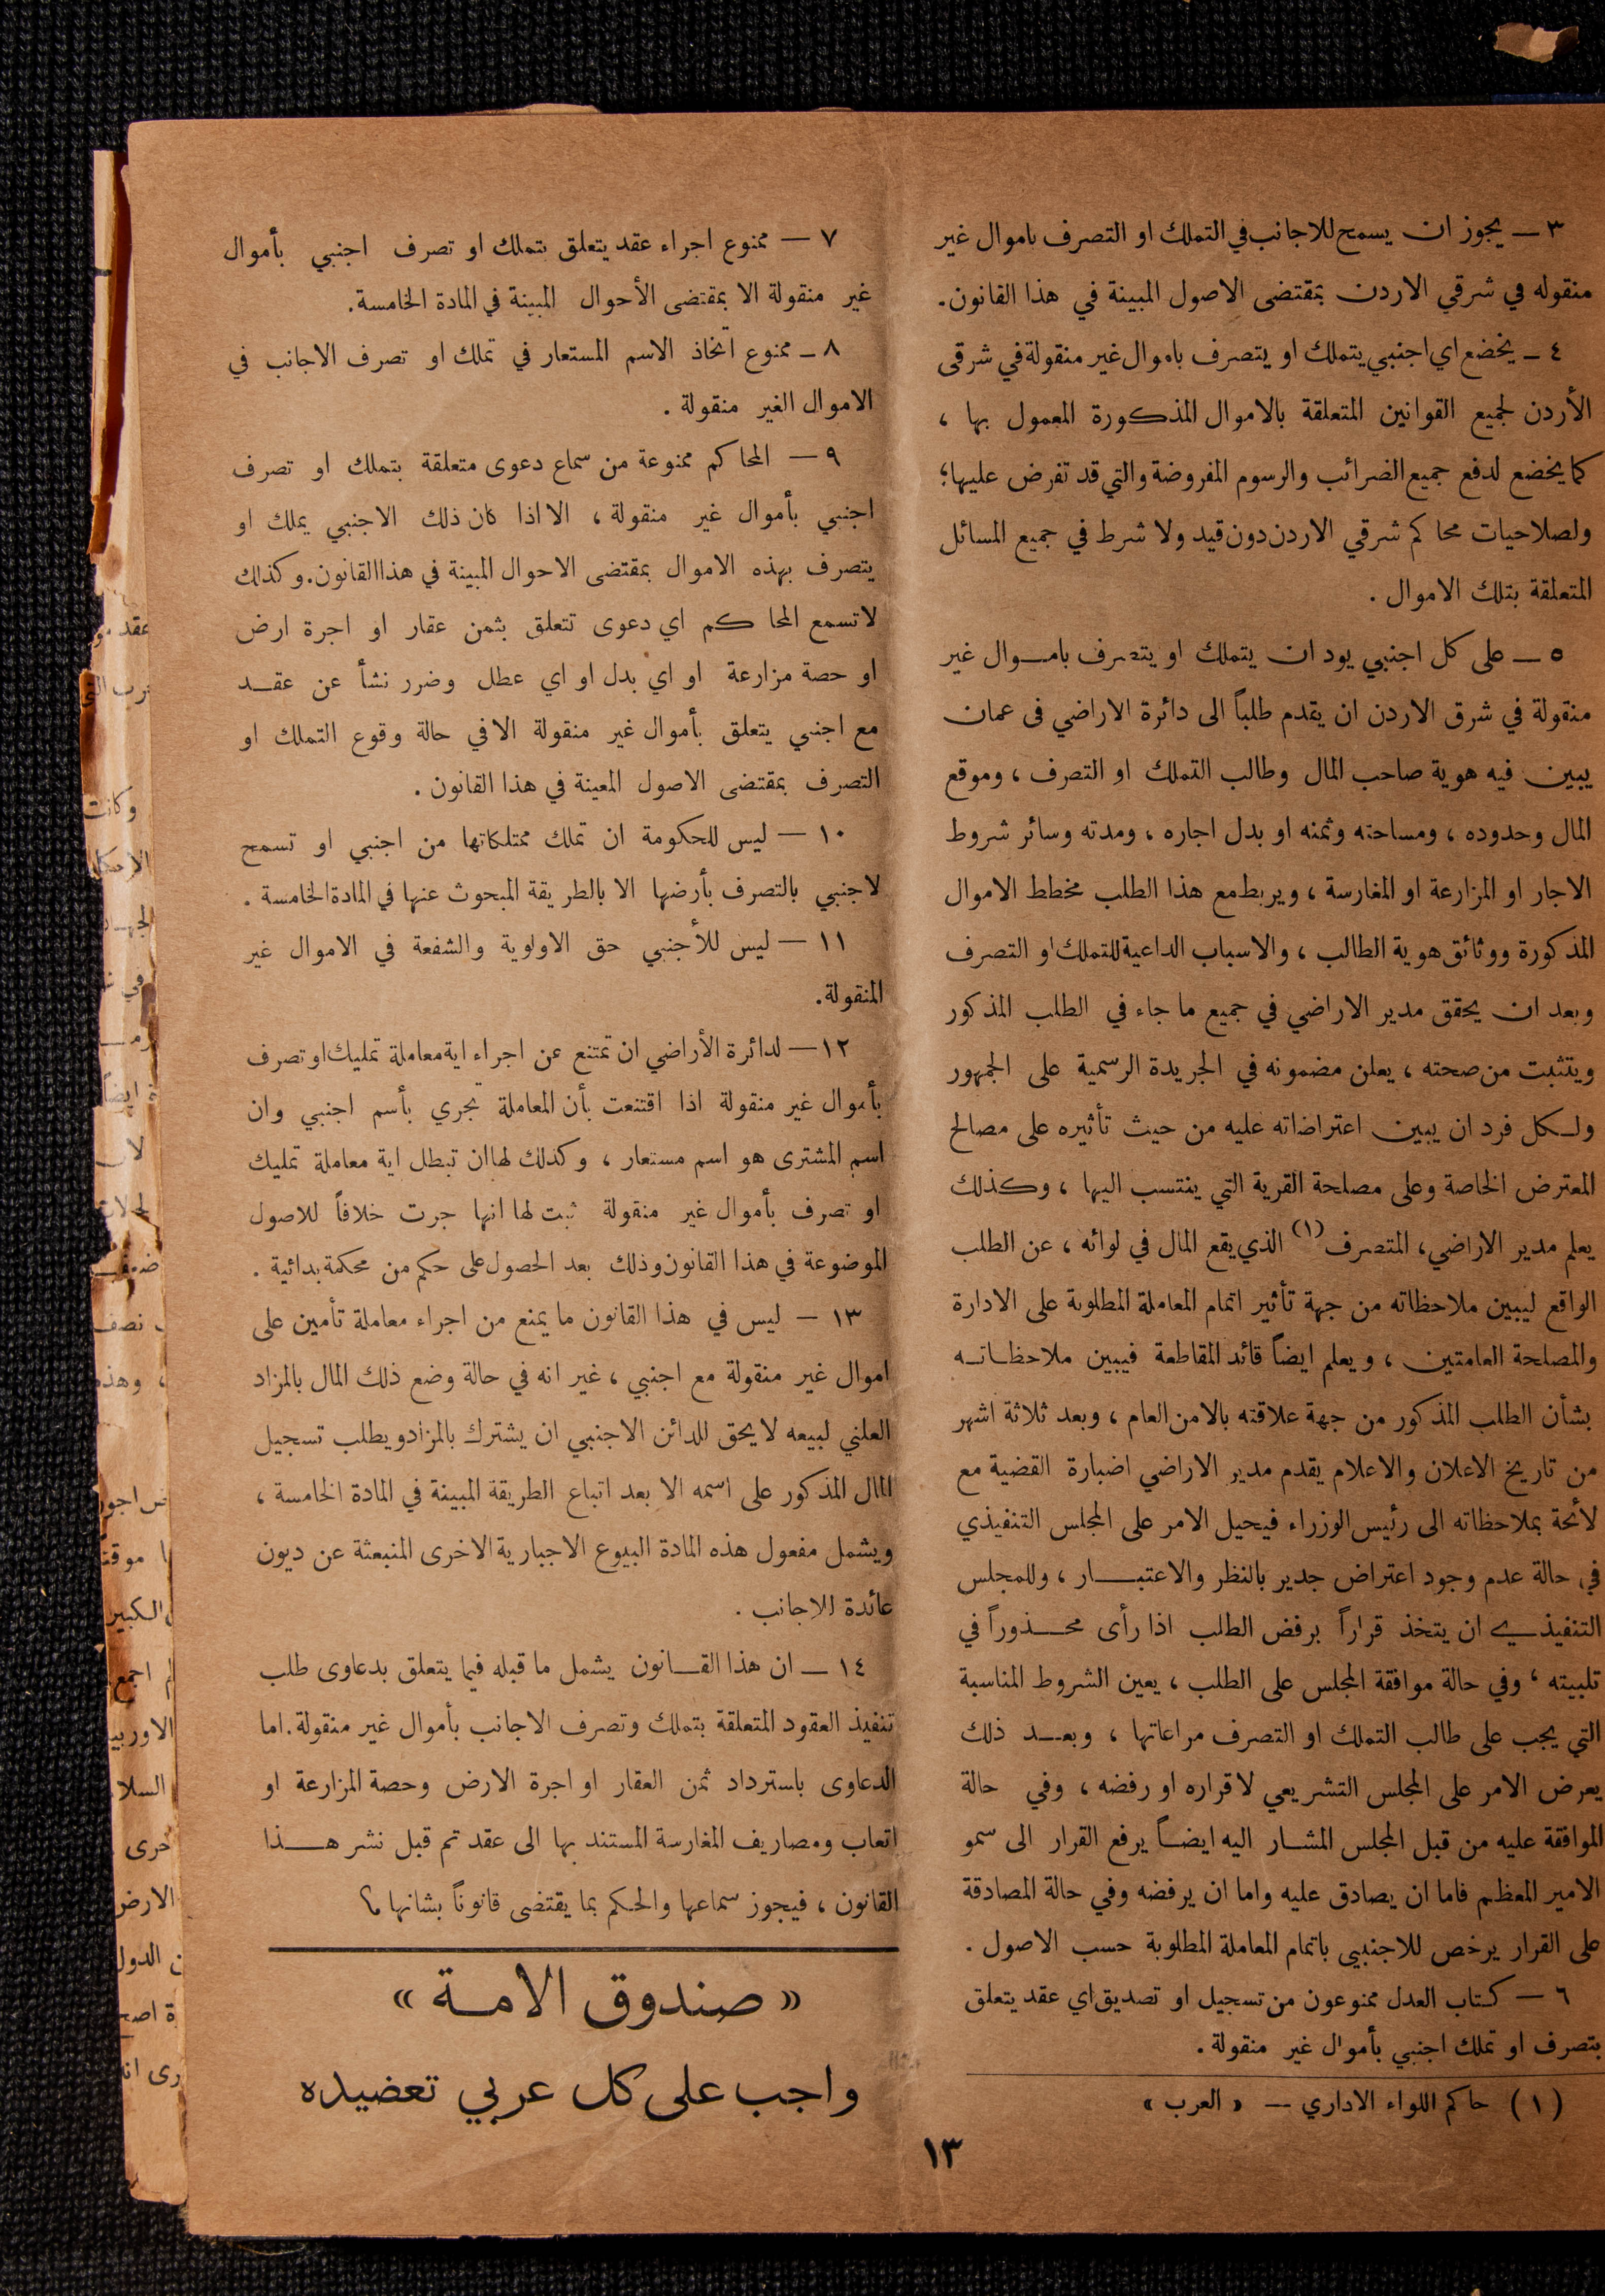 ٣ — يجوز ان يسمح للاجانب في التملك او التصرف باموال غير
منقوله في شرقي الاردن بمقتضى الاصول المبينة في هذا القانون.
٤ — يخضع اي اجنبي يتملك او يتصرف باموال غير منقولة في شرقى
الأردن لجميع القوانين المتعلقة بالاموال المذكورة المعمول بها ،
كما يخضع لدفع جميع الضرائب والرسوم المفروضة والتي قد تفرض عليها؛
ولصلاحيات محاكم شرقي الاردن دون قيد ولا شرط في جميع المسائل
المتعلقة بتلك الاموال .
٥ — على كل اجنبي يود ان يتملك او يتصرف باموال غير
منقولة في شرق الاردن ان يقدم طلباً الى دائرة الاراضي فى عمان
يبين فيه هوية صاحب المال وطالب التملك او التصرف ، وموقع
المال وحدوده ، ومساحته وثمنه او بدل اجاره ، ومدته وسائر شروط
الاجار او المزارعة او المغارسة ، ويربط مع هذا الطلب مخطط الاموال
المذكورة ووثائق هوية الطالب ، والاسباب الداعية للتملك او التصرف
وبعد ان يحقق مدير الاراضي في جميع ما جاء في الطلب المذكور
ويتثبت من صحته ، يعلن مضمونه في الجريدة الرسمية على الجمهور
ولكل فرد ان يبين اعتراضاته عليه من حيث تأثيره على مصالح
المعترض الخاصة وعلى مصلحة القرية التي ينتسب اليها ، وكذلك
يعلم مدير الاراضي، المتصرف (١) الذي يقع المال في لوائه ، عن الطلب
الواقع ليبين ملاحظاته من جهة تأثير اتمام المعاملة المطلوبة على الادارة
والمصلحة العامتين ، ويعلم ايضاً قائد المقاطعة فيبين ملاحظاته
بشأن الطلب المذكور من جهة علاقته بالامن العام ، وبعد ثلاثة اشهر
من تاريخ الاعلان والاعلام يقدم مدير الاراضي اضبارة القضية مع
لأئحة بملاحظاته الى رئيس الوزراء فيحيل الامر على المجلس التنفيذي
في حالة عدم وجود اعتراض جدير بالنظر والاعتبار ، وللمجلس
التنفيذي ان يتخذ قراراً برفض الطلب اذا رأى محذوراً في
تلبيته ، وفي حالة موافقة المجلس على الطلب ، يعين الشروط المناسبة
التي يجب على طالب التملك او التصرف مراعاتها ، وبعد ذلك
يعرض الامر على المجلس التشريعي لاقراره او رفضه ، وفي حالة
الموافقة عليه من قبل المجلس المشار اليه ايضاً يرفع القرار الى سمو
الامير المعظم فاما ان يصادق عليه واما ان يرفضه وفي حالة المصادقة
على القرار يرخص للاجنبي باتمام المعاملة المطلوبة حسب الاصول .
٦ — كتاب العدل ممنوعون من تسجيل او تصديق اي عقد يتعلق
بتصرف او تملك اجنبي بأموال غير منقولة .
(١) حاكم اللواء الاداري — « العرب »
٧ — ممنوع اجراء عقد يتعلق بتملك او تصرف اجنبي بأموال
غير منقولة الا بمقتضى الأحوال المبينة في المادة الخامسة.
٨ — ممنوع اتخاذ الاسم المستعار في تملك او تصرف الاجانب في
الاموال الغير منقولة .
٩ — المحاكم ممنوعة من سماع دعوى متعلقة بتملك او تصرف
اجنبي بأموال غير منقولة ، الا اذا كان ذلك الاجنبي يملك او
يتصرف بهذه الاموال بمقتضى الاحوال المبينة في هذا القانون. وكذلك
لا تسمع المحاكم اي دعوى تتعلق بثمن عقار او اجرة ارض
او حصة مزارعة او اي بدل او اي عطل وضرر نشأ عن عقد
مع اجنبي يتعلق بأموال غير منقولة الا في حالة وقوع التملك او
التصرف بمقتضى الاصول المعينة في هذا القانون .
١٠ — ليس للحكومة ان تملك ممتلكاتها من اجنبي او تسمح
لاجنبي بالتصرف بأرضها الا بالطريقة المبحوث عنها في المادة الخامسة .
١١ — ليس للأجنبي حق الاولوية والشفعة في الاموال غير
المنقولة.
١٢ — لدائرة الأراضي ان تمتنع عن اجراء اية معاملة تمليك او تصرف
بأموال غير منقولة اذا اقتنعت بأن المعاملة تجري بأسم اجنبي وان
اسم المشترى هو اسم مستعار ، وكذلك لها ان تبطل اية معاملة تمليك
او تصرف بأموال غير منقولة ثبت لها انها جرت خلافاً للاصول
الموضوعة في هذا القانون وذلك بعد الحصول على حكم من محكمة بدائية .
١٣ — ليس في هذا القانون ما يمنع من اجراء معاملة تأمين على
اموال غير منقولة مع اجنبي ، غير انه في حالة وضع ذلك المال بالمزاد
العلني لبيعه لا يحق للدائن الاجنبي ان يشترك بالمزاد ويطلب تسجيل
المال المذكور على اسمه الا بعد اتباع الطريقة المبينة في المادة الخامسة ،
ويشمل مفعول هذه المادة البيوع الاجبارية الاخرى المنبعثة عن ديون
عائدة للاجانب .
١٤ — ان هذا القانون يشمل ما قبله فيما يتعلق بدعاوى طلب
تنفيذ العقود المتعلقة بتملك وتصرف الاجانب بأموال غير منقولة. اما
الدعاوى باسترداد ثمن العقار او اجرة الارض وحصة المزارعة او
اتعاب ومصاريف المغارسة المستند بها الى عقد تم قبل نشر هذا
القانون ، فيجوز سماعها والحكم بما يقتضى قانوناً بشانها ؟
« صندوق الامة »
واجب على كل عربي تعضيده
١٣
عقد
وكانت
نصف
، وهذه
موقتا
الكبير
اجمع
السلا
الارض
الدول